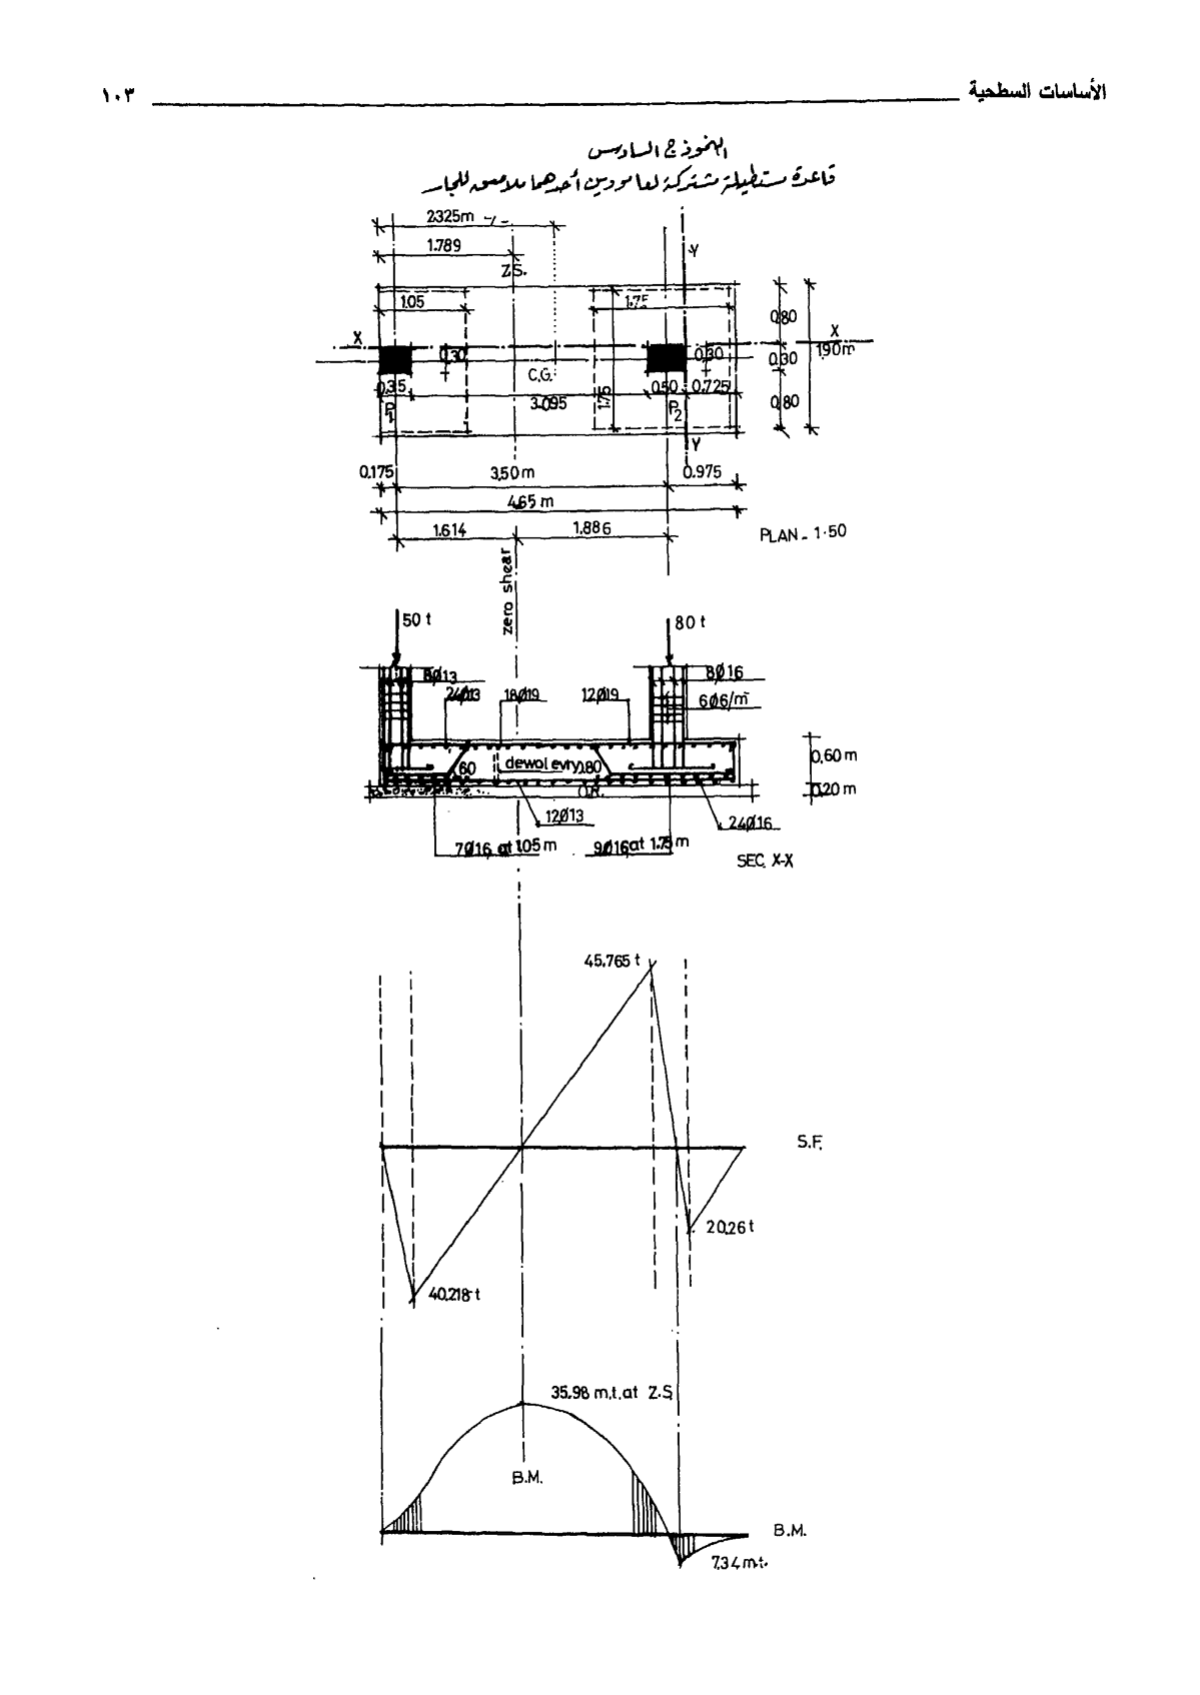 الأساسات السطحية ١٠٣
النموذج السادس
قاعدة مستطيلة مشتركة لعامودين أحدهما ملاصق للجار
2325m
1.789
Z.S.
Y
1.05
1.75
0.80
X
X
0.30
0.30
0.30
1.90m
C.G.
0.35
0.50
0.725
3.095
1.75
0.80
P1
P2
Y
0.175
3.50m
0.975
4.65 m
1.614
1.886
PLAN - 1·50
zero shear
50 t
80 t
8Ø13
8Ø16
24Ø13
18Ø19
12Ø19
6Ø6/m
0.60 m
60
dewol evry
80
0.20 m
12Ø13
24Ø16
7Ø16 at 1.05 m
9Ø16 at 1.75 m
SEC. X-X
45.765 t
S.F.
20.26 t
40.218 t
35.98 m.t. at Z.S
B.M.
B.M.
7.34 m.t.